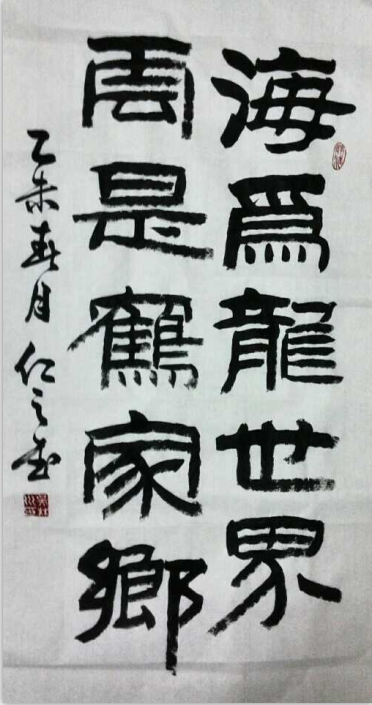 海爲龍世界
雲是鶴家鄉
乙未春月仁之書